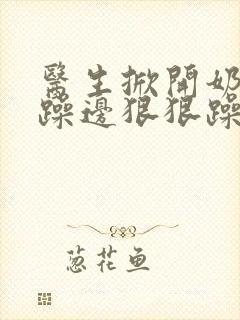 醫生掀開奶
躁邊狠狠躁
葱花鱼